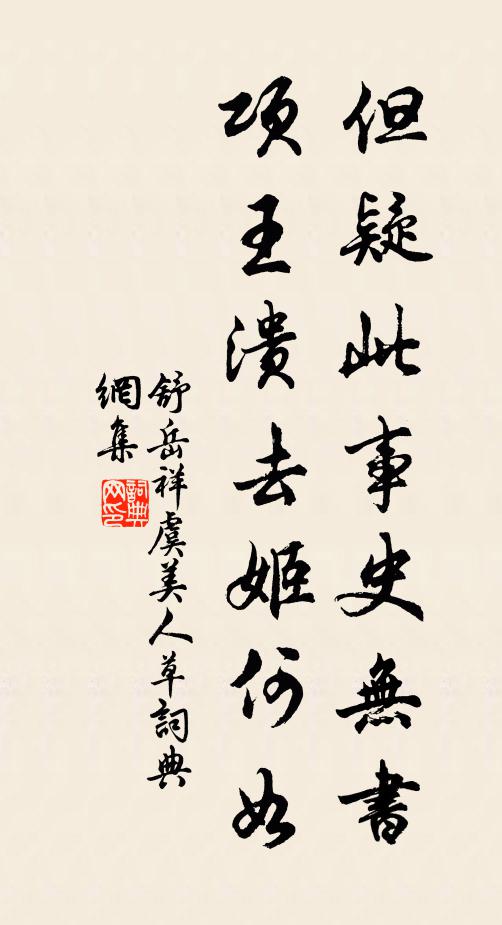 但疑此事史無書
项王潰去姬何如
舒岳祥虞美人草詞典
網集
詞典
网印